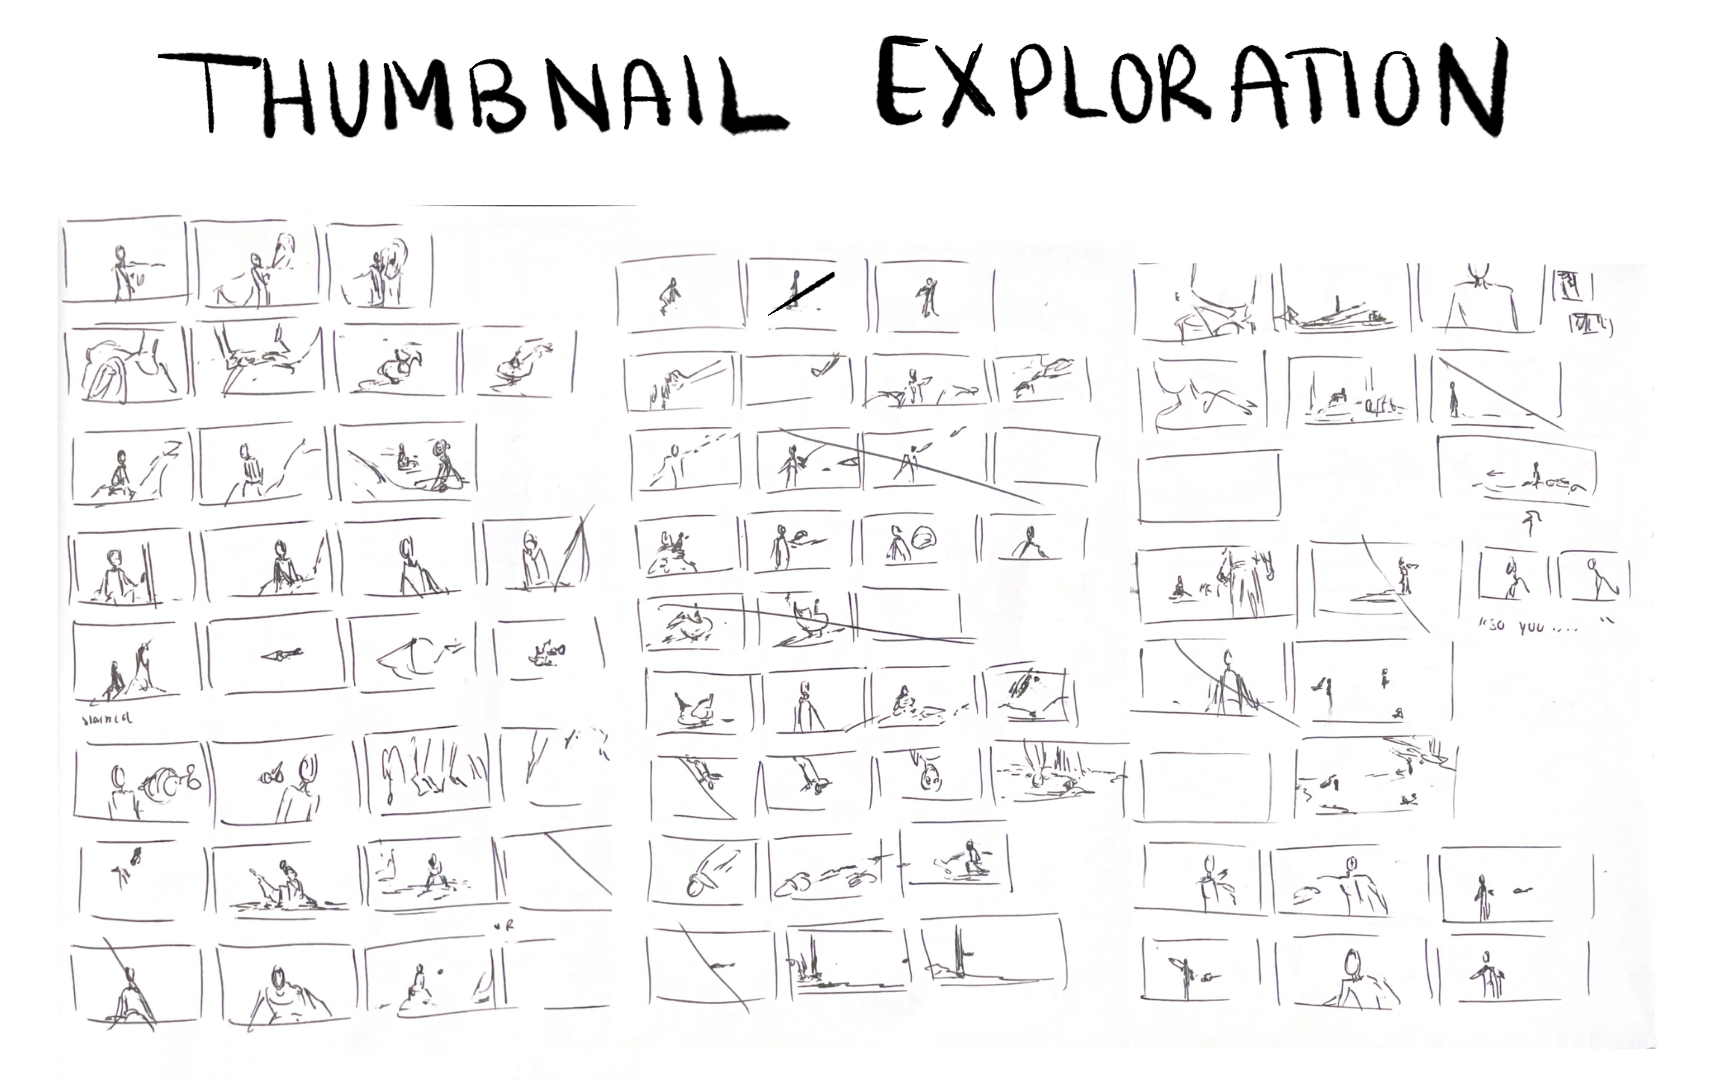 THUMBNAIL EXPLORATION
OR
"SO YOU .... "